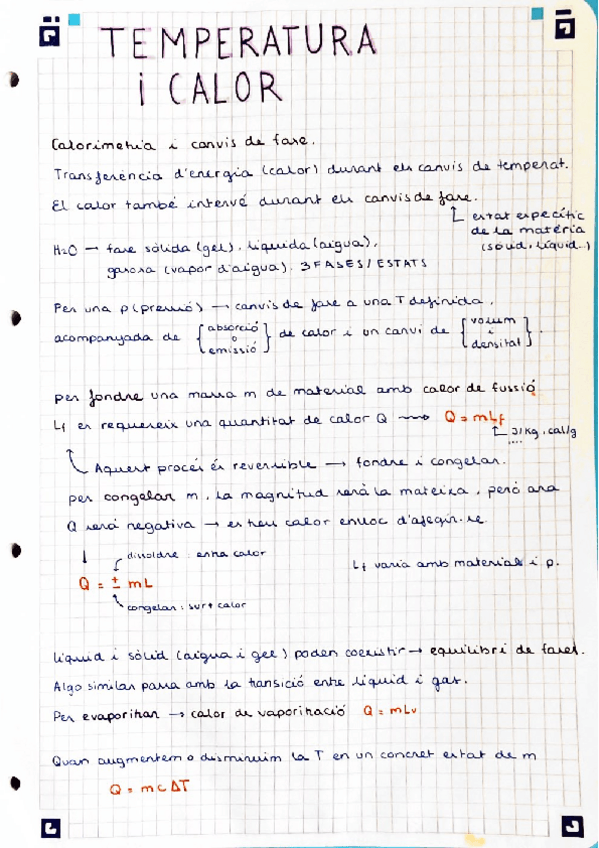 TEMPERATURA
i CALOR
Calorimetria i canvis de fase.
Transferència d'energia (calor) durant els canvis de temperat.
El calor també intervé durant els canvis de fase.
estat específic
de la matèria
(sòlid, líquid...)
H2O → fase sòlida (gel), líquida (aigua),
gasosa (vapor d'aigua). 3 FASES/ESTATS
Per una p (pressió) → canvis de fase a una T definida,
acompanyada de {absorció o emissió} de calor i un canvi de {volum i densitat}.
per fondre una massa m de material amb calor de fussió
Lf es requereix una quantitat de calor Q → Q = mLf
J/kg, cal/g
Aquest procés és reversible → fondre i congelar.
per congelar m, la magnitud serà la mateixa, però ara
Q serà negativa → es treu calor enlloc d'afegir-se.
dissoldre: entra calor
Q = ± mL
Lf varia amb material i p.
congelar: surt calor
líquid i sòlid (aigua i gel) poden coexistir → equilibri de fases.
Algo similar passa amb la transició entre líquid i gas.
Per evaporitzar → calor de vaporització Q = mLv
Quan augmentem o disminuim la T en un concret estat de m
Q = mcΔT